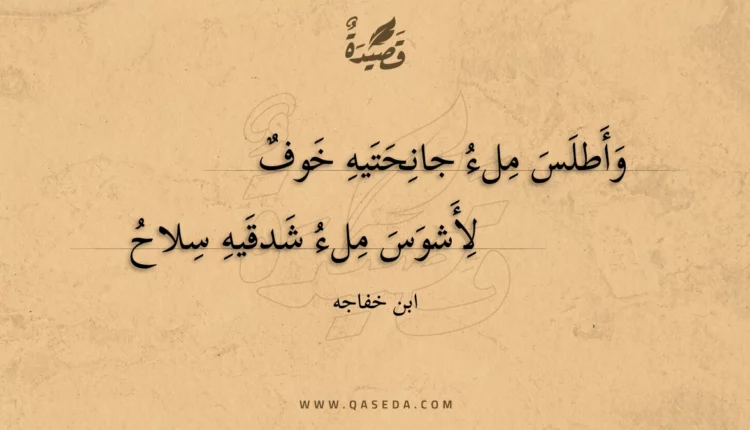 قَصِيْدَةٌ
وَأَطلَسَ مِلءُ جانِحَتَيهِ خَوفٌ
لِأَشوَسَ مِلءُ شَدقَيهِ سِلاحُ
ابن خفاجه
WWW.QASEDA.COM